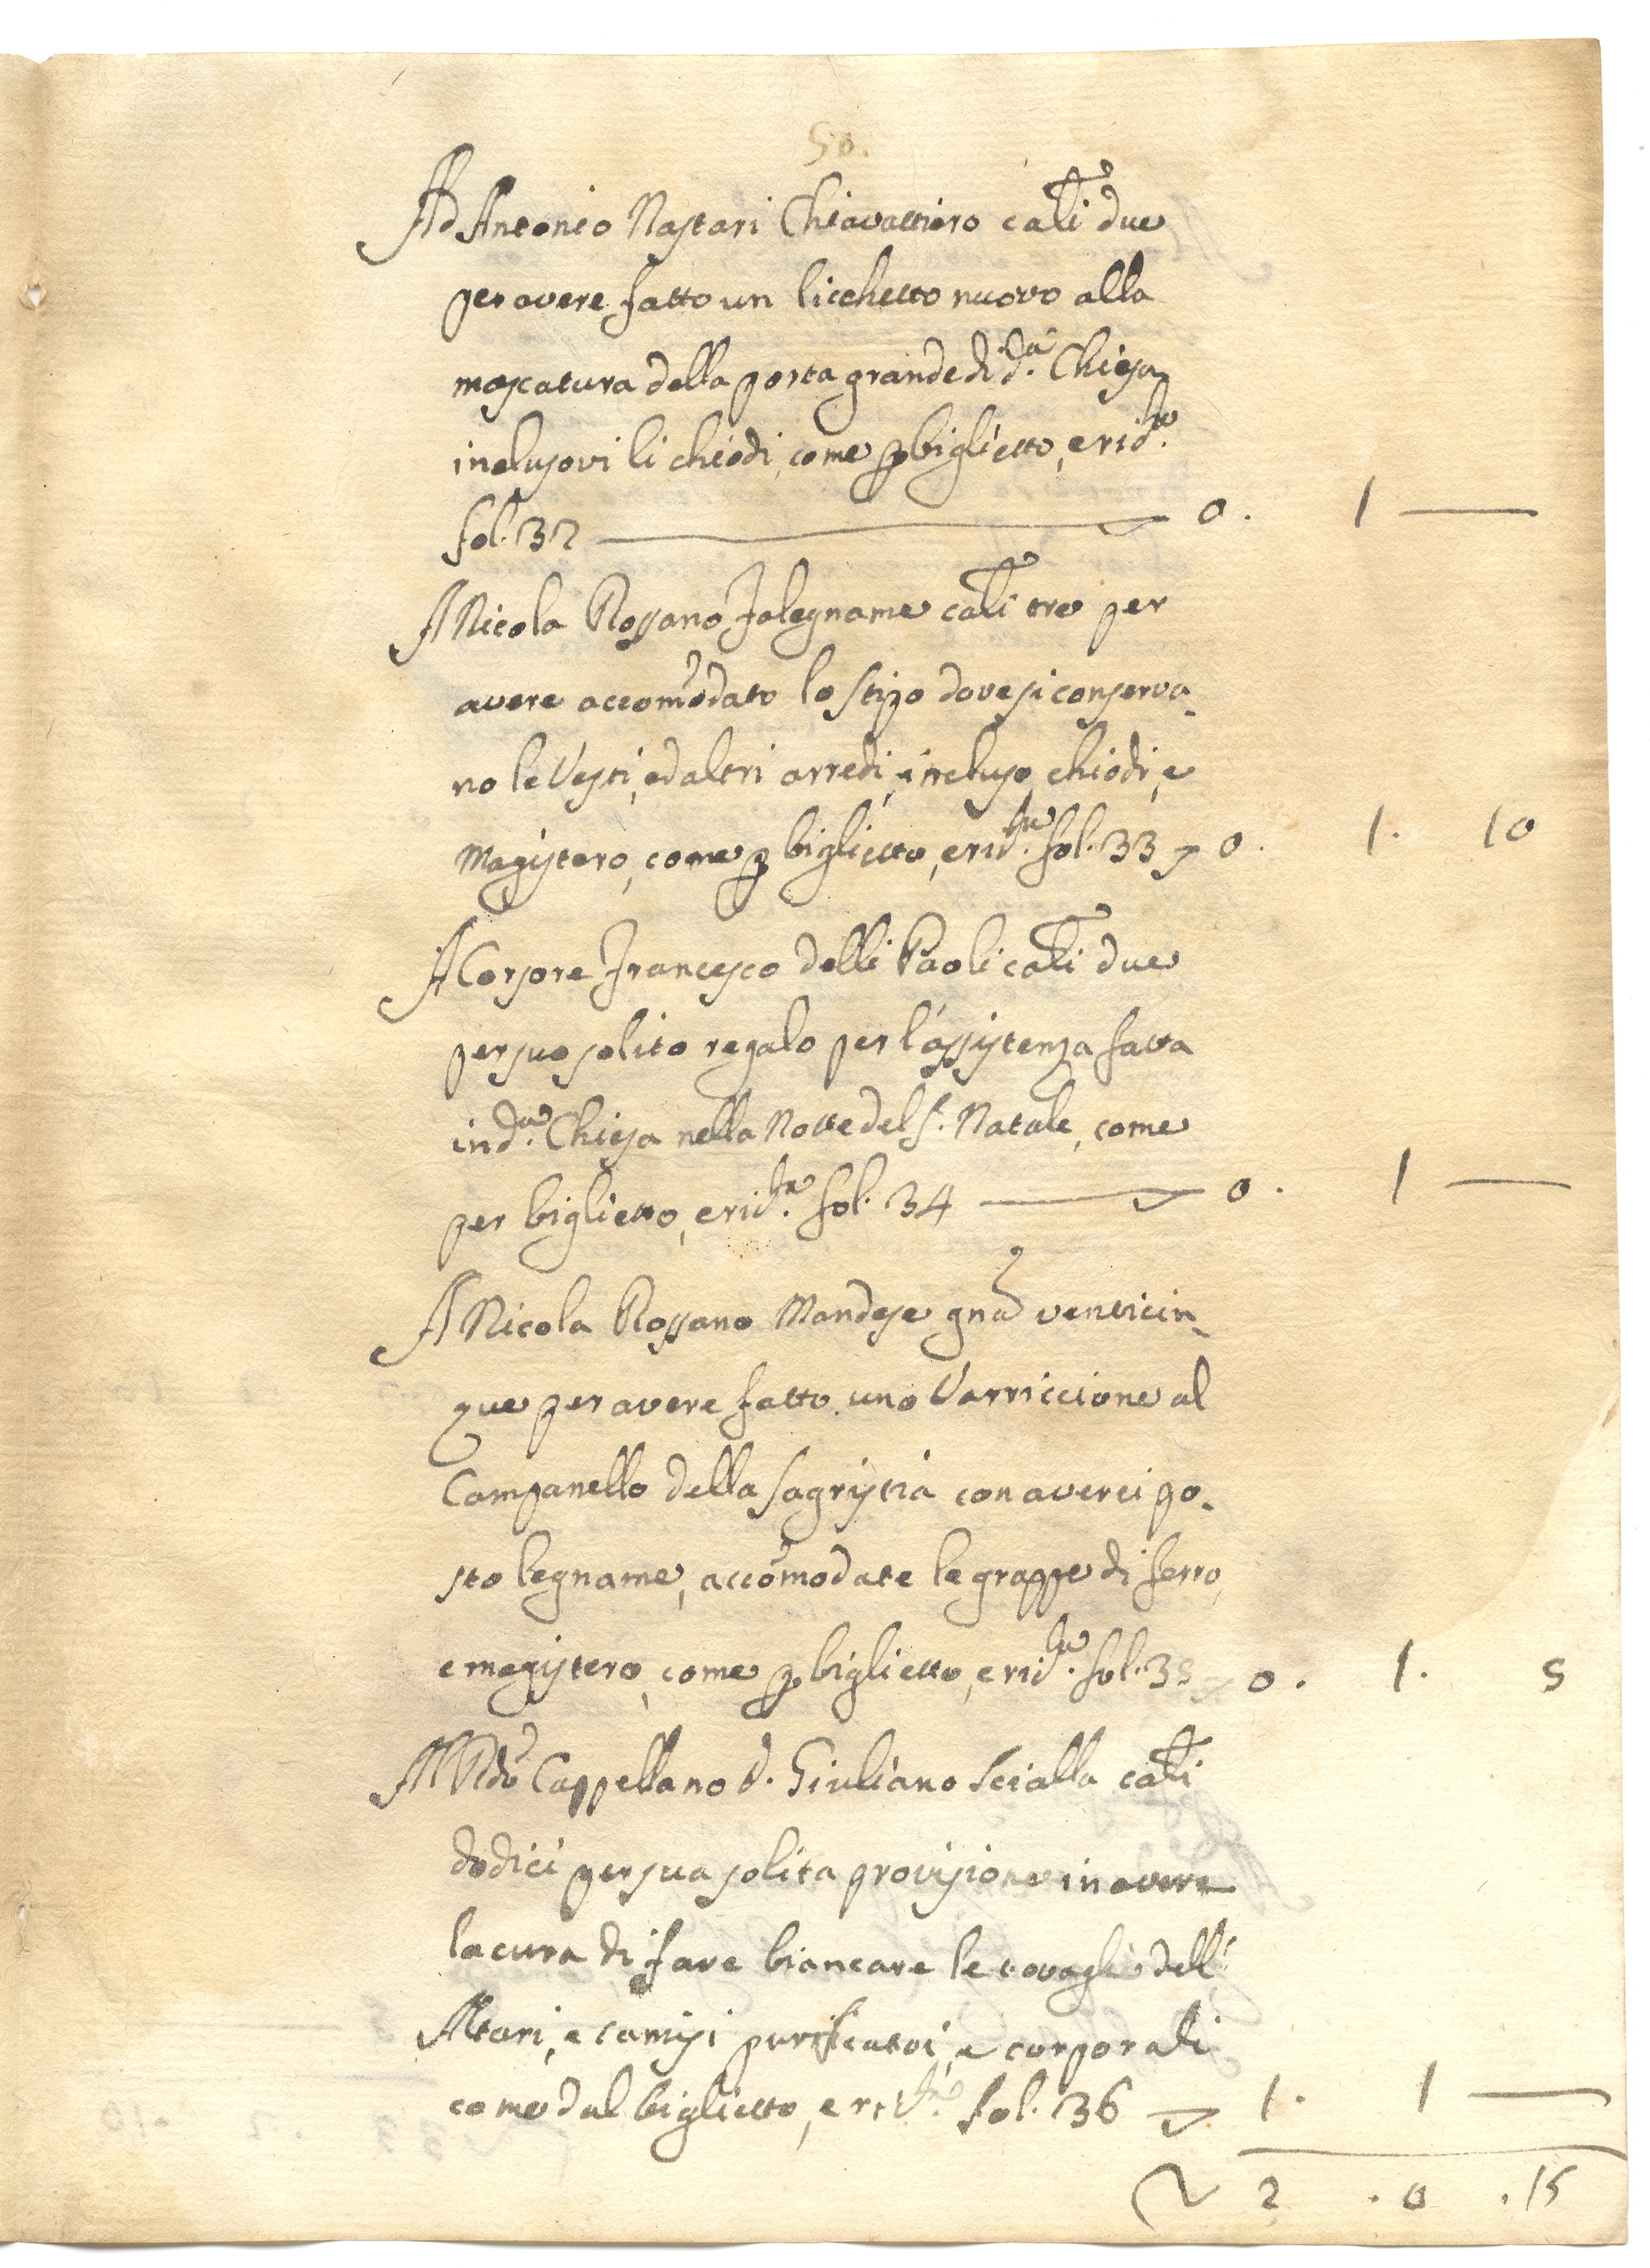 50.
Ad Antonio Nastari Chiavattiero carli due
per avere fatto un licchetto nuovo alla
mascatura della porta grande di d.ª Chiesa
inclusovi li chiodi, come p biglietto, e rict.ª
fol. 32 0. 1 —
A Nicola Rossano Falegname carli tre per
avere accommodato lo stipo dove si conserva-
no le Vesti, ed altri arredi, incluso chiodi, e
Magistero, come p biglietto, e rict.ª fol. 33 0. 1. 10
A Corsore Francesco delli Paoli carli due
per suo solito regalo per l'assistenza fatta
in d.ª Chiesa nella Notte del S. Natale, come
per biglietto, e rict.ª fol. 34 0. 1 —
A Nicola Rossano Mandese gna venticin-
que per avere fatto uno Varriccione al
Campanello della Sagristia con averci po-
sto legname, accommodate le grappe di ferro,
e magistero, come p biglietto, e rict.ª fol. 35 0. 1. 5
Al Rdo Cappellano D. Giuliano Scialla carli
dodici per sua solita provisione in avere
la cura di fare biancare le tovaglie dell'
Altari, e camisi purificatoi, e corporali
come dal biglietto, e rict.ª fol. 36 1. 1 —
2 . 0 . 15